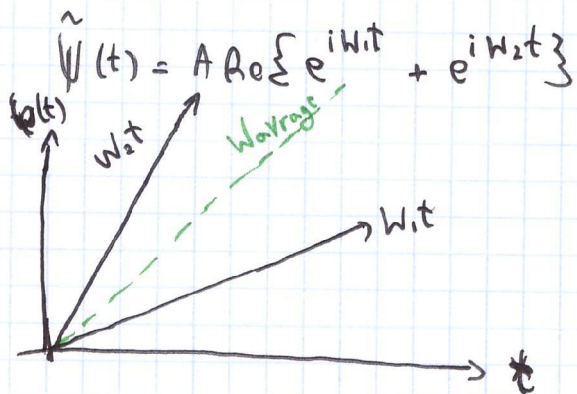 ψ̃(t) = A Re{ e^{iω₁t} + e^{iω₂t} }
φ(t)
ω₂t
ωavrage
ω₁t
t